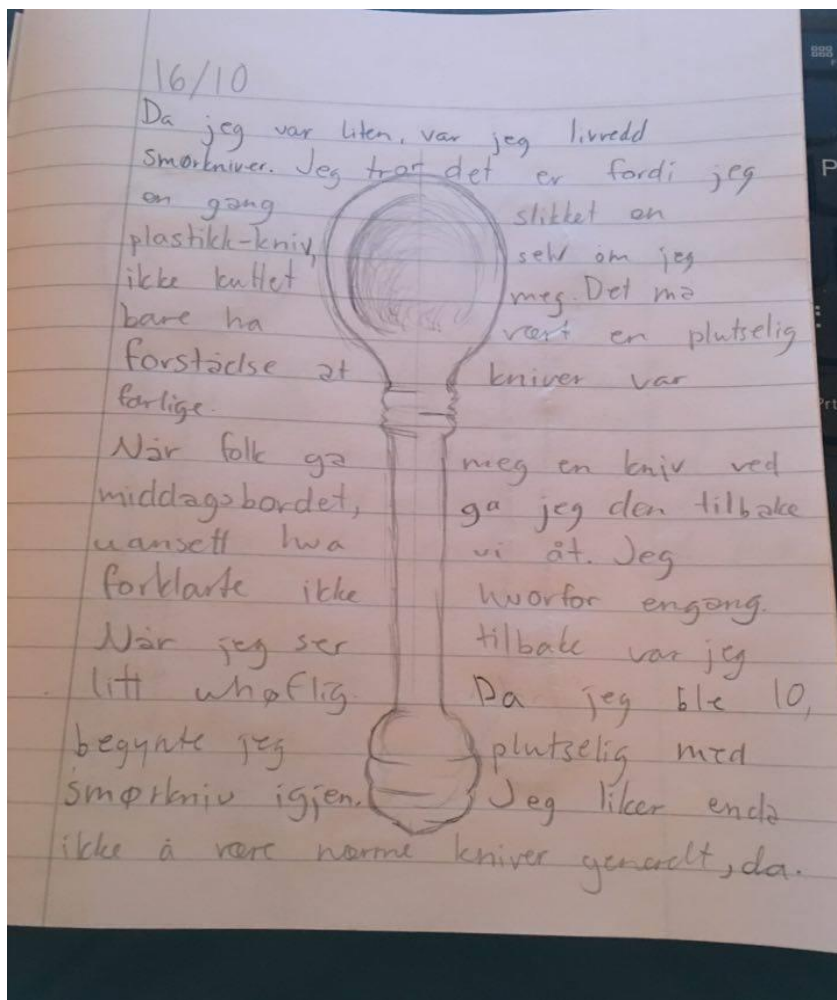 16/10
Da jeg var liten, var jeg livredd
smørkniver. Jeg tror det er fordi jeg
en gang slikket en
plastikk-kniv, selv om jeg
ikke kuttet meg. Det må
bare ha vært en plutselig
forståelse at kniver var
farlige.
Når folk ga meg en kniv ved
middagsbordet, ga jeg den tilbake
uansett hva vi åt. Jeg
forklarte ikke hvorfor engang.
Når jeg ser tilbake var jeg
litt uhøflig. Da jeg ble 10,
begynte jeg plutselig med
smørkniv igjen. Jeg liker enda
ikke å være nærme kniver generelt, da.